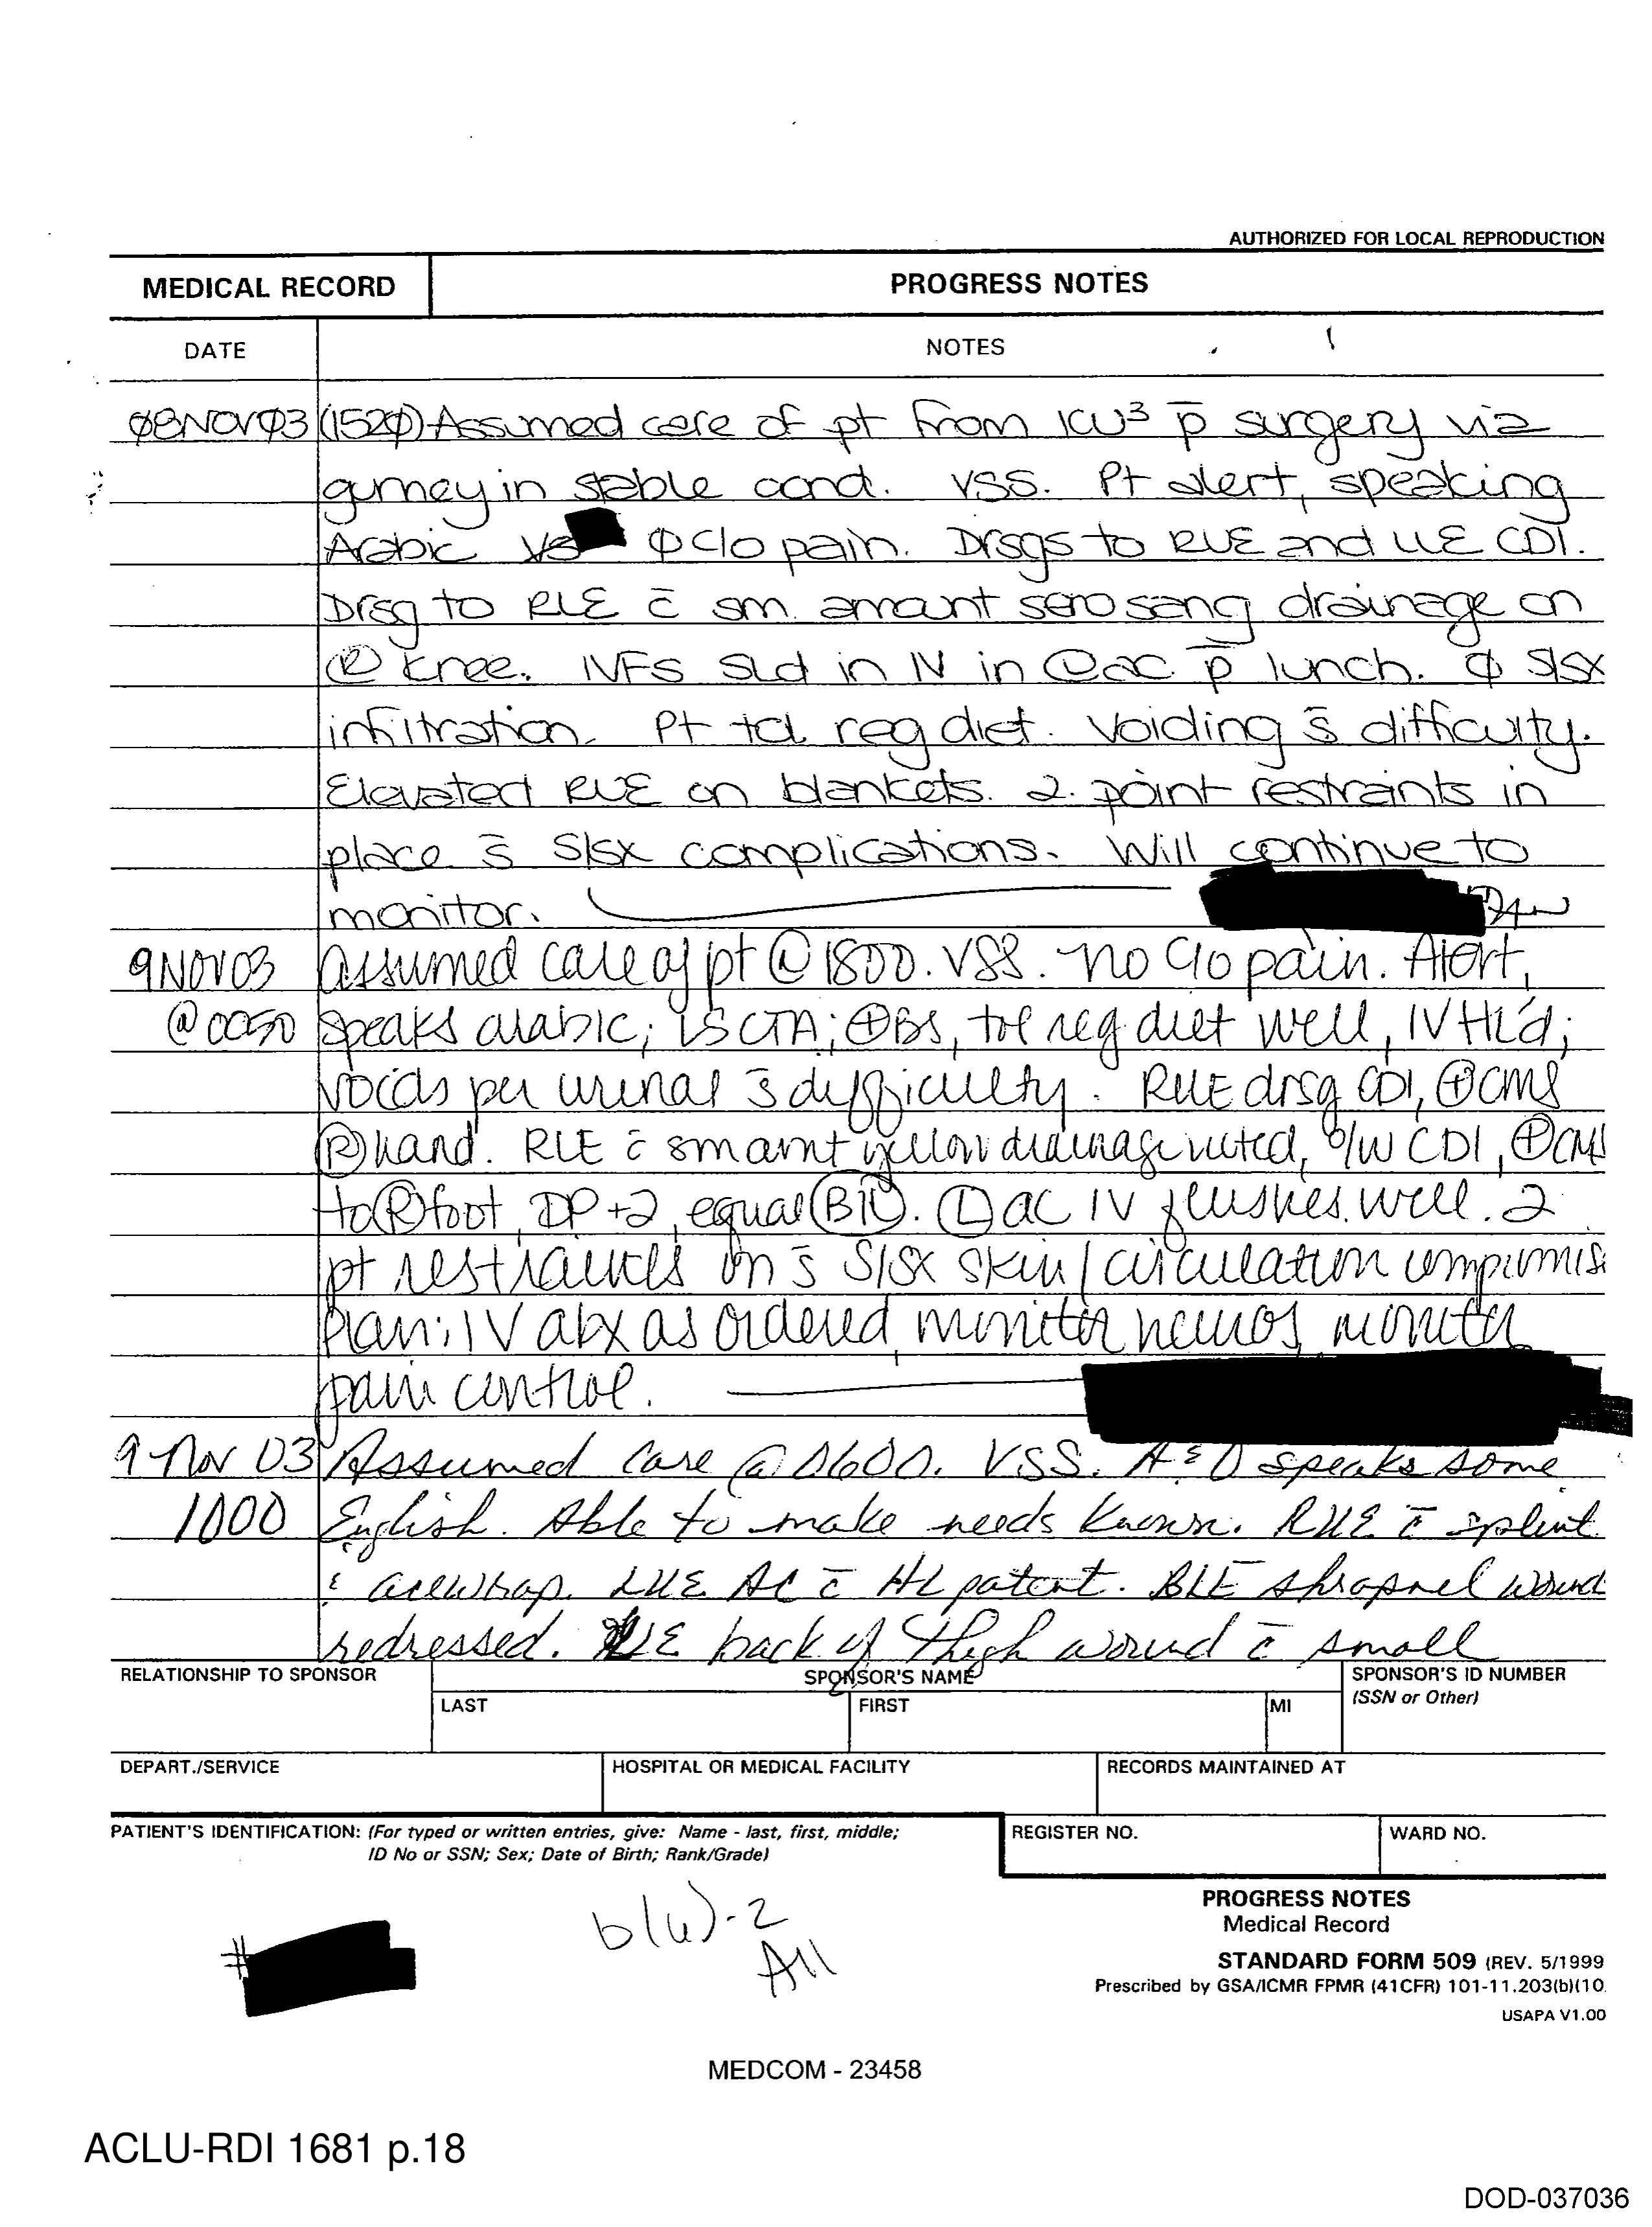 AUTHORIZED FOR LOCAL REPRODUCTION
MEDICAL RECORD PROGRESS NOTES
DATE NOTES
08NOV03 (1520) Assumed care of pt from ICU3 p̄ surgery via
gurney in stable cond. VSS. Pt alert, speaking
Arabic φ c/o pain. Drsgs to RUE and LLE CDI.
Drsg to RLE c̄ sm. amount serosang drainage on
Ⓡ knee. IVFS SLd in IV in Ⓛ ac p̄ lunch. φ S/Sx
infiltration. Pt tol reg diet. Voiding s̄ difficulty.
Elevated RUE on blankets. 2. point restraints in
place s̄ S/Sx complications. Will continue to
monitor.
9NOV03 Assumed care of pt @ 1800. VSS. No c/o pain. Alert,
@ 0050 speaks arabic; LS CTA; ⊕BS, tol reg diet well, IV HL'd;
voids per urinal s̄ difficulty. RUE drsg CDI, ⊕CMS
Ⓡ hand. RLE c̄ sm amnt yellow drainage noted, o/w CDI, ⊕CMS
to Ⓡ foot, DP+2, equal Bil. Ⓛ ac IV flushes well. 2
pt restraints on s̄ S/Sx skin/circulation compromis
Plan: IV abx as ordered, monitor neuros, monitor
pain control.
9 Nov 03 Assumed care @ 0600. VSS. A&O speaks some
1000 English. Able to make needs known. RUE c̄ splint
& acewrap. LUE AC c̄ HL patent. BLE shrapnel wound
redressed. back of thigh wound c̄ small
RELATIONSHIP TO SPONSOR SPONSOR'S NAME SPONSOR'S ID NUMBER
LAST FIRST MI (SSN or Other)
DEPART./SERVICE HOSPITAL OR MEDICAL FACILITY RECORDS MAINTAINED AT
PATIENT'S IDENTIFICATION: (For typed or written entries, give: Name - last, first, middle; REGISTER NO. WARD NO.
ID No or SSN; Sex; Date of Birth; Rank/Grade)
#
b(6)-2
All
PROGRESS NOTES
Medical Record
STANDARD FORM 509 (REV. 5/1999
Prescribed by GSA/ICMR FPMR (41CFR) 101-11.203(b)(10
USAPA V1.00
MEDCOM - 23458
ACLU-RDI 1681 p.18
DOD-037036